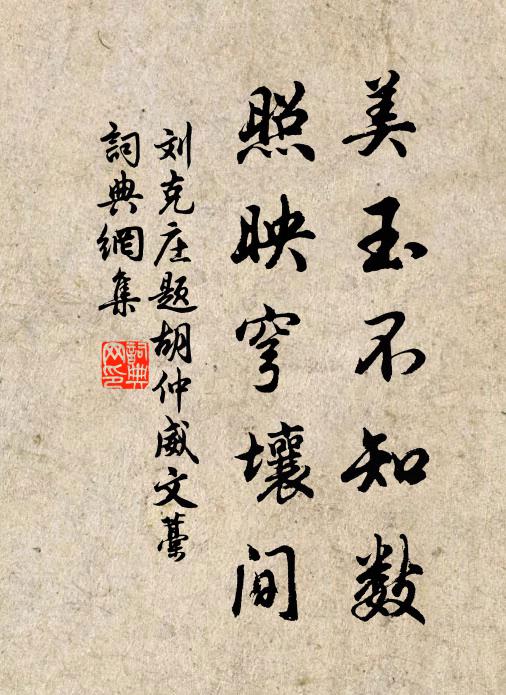 美玉不知数
照映穹壤间
刘克庄题胡仲威文藁
詞典網集
詞典
网印